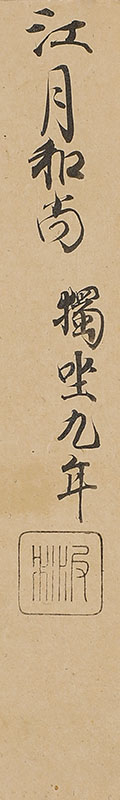 江月和尚 獨坐九年